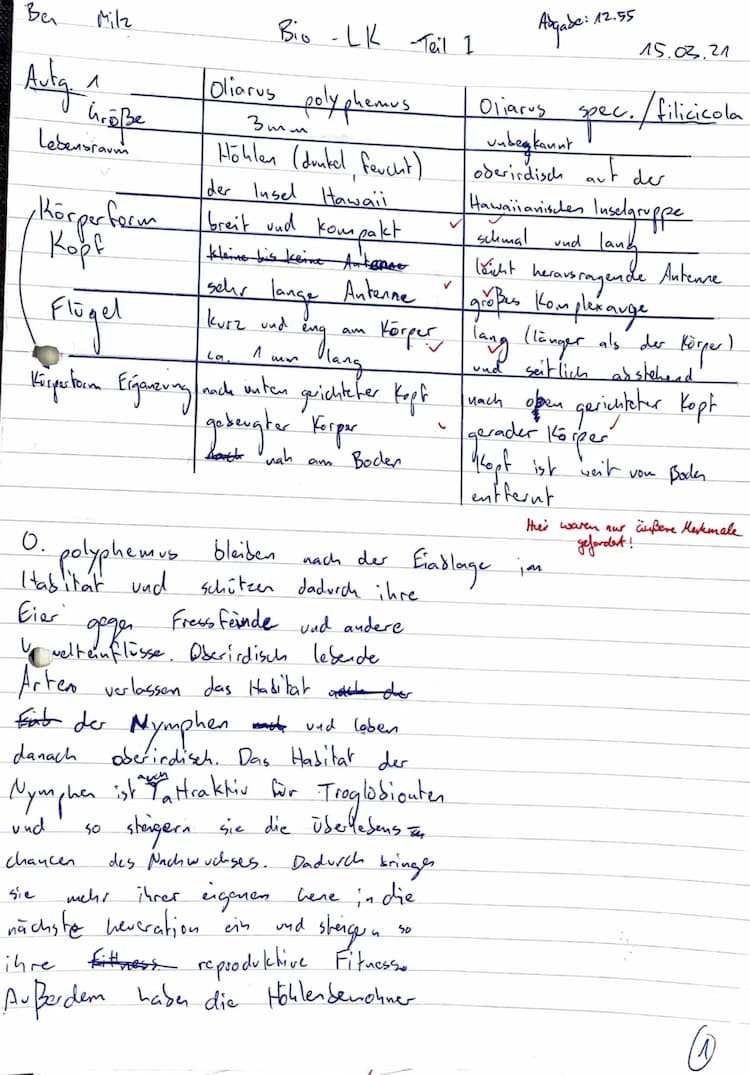 Ben Milz
Bio - LK - Teil I
Abgabe: 12.55
15.03.21
Aufg. 1
Oliarus polyphemus
Oliarus spec./filicicola
Größe
3mm
unbegkannt
Lebensraum
Höhlen (dunkel, feucht)
der Insel Hawaii
oberirdisch auf der
Hawaiianischen Inselgruppe
Körperform
breit und kompakt
schmal und lang
Kopf
kleine bis keine Antenne
sehr lange Antenne
leicht herausragende Antenne
großes Komplexauge
Flügel
kurz und eng am Körper
ca. 1 mm lang
lang (länger als der Körper)
und seitlich abstehend
Körperform Ergänzung
nach unten gerichteter Kopf
gebeugter Körper
nah am Boden
nach oben gerichteter Kopf
gerader Körper
Kopf ist weit vom Boden
entfernt
Hier waren nur äußere Merkmale
gefordert!
O. polyphemus bleiben nach der Eiablage im
Habitat und schützen dadurch ihre
Eier gegen Fressfeinde und andere
Umwelteinflüsse. Oberirdisch lebende
Arten verlassen das Habitat nach der
der Nymphen und leben
danach oberirdisch. Das Habitat der
Nymphen ist auch attraktiv für Troglobionten
und so steigern sie die Überlebens
chancen des Nachwuchses. Dadurch bringen
sie mehr ihrer eigenen Gene in die
nächste Generation ein und steigern so
ihre fittness reproduktive Fitness.
Außerdem haben die Höhlenbewohner
1